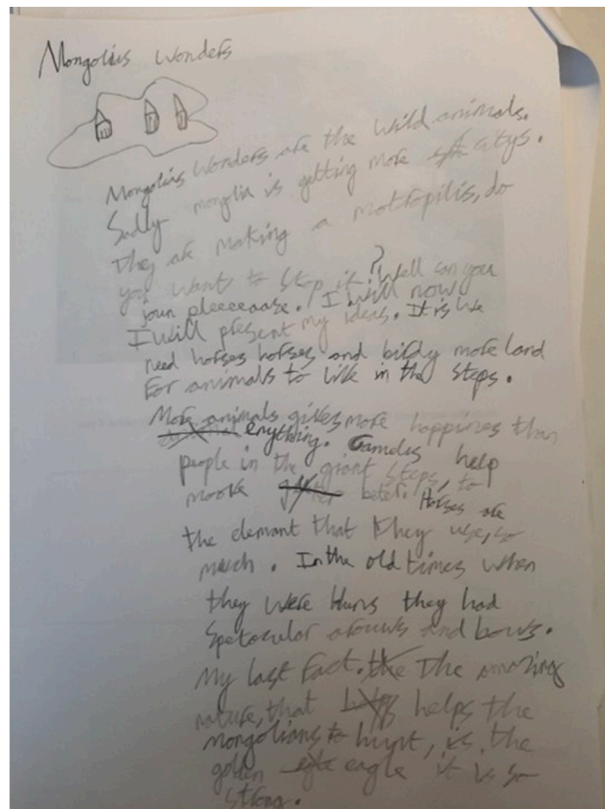 Mongolias Wonders
Mongolias Wonders are the wild animals.
Sadly monglia is getting more citys.
They are making a motropilis, do
you want to stop it? Well can you
joun pleeeeaase. I will now
I will present my ideas. It is we
need horses horses and birdy more land
For animals to live in the steps.
More animals gives more happines than
enything. Camels help
people in the giant steps, to
moove beter. Horses are
the elemant that they use, so
much. In the old times when
they were Huns they had
Spetocular arouws and bows.
My last fact. The amazing
nature, that helps the
mongolians to hunt, is the
golden eagle it is so
strong.